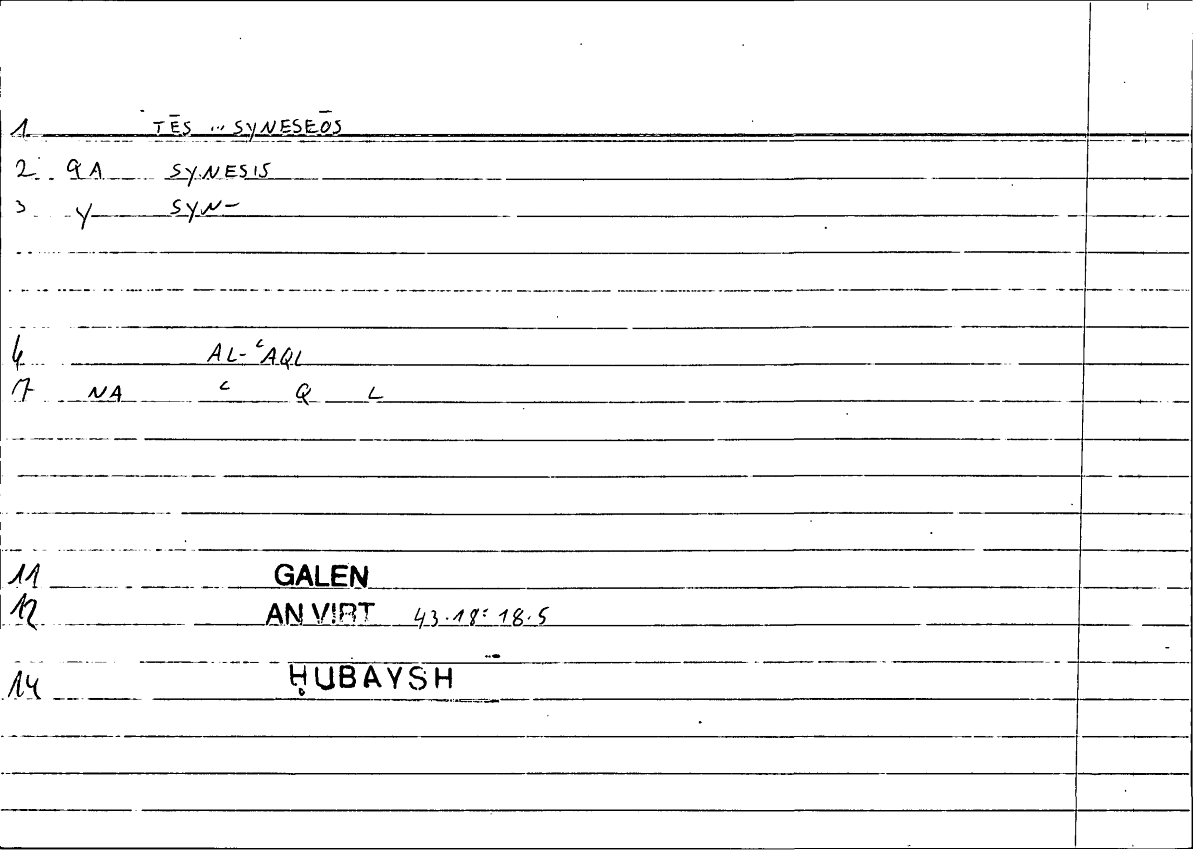 1 TĒS ... SYNESEŌS
2 QA SYNESIS
3 Y SYN-
6 AL-ʿAQL
7 NA ʿ Q L
11 GALEN
12 AN VIRT 43.18: 18.5
14 ḤUBAYSH